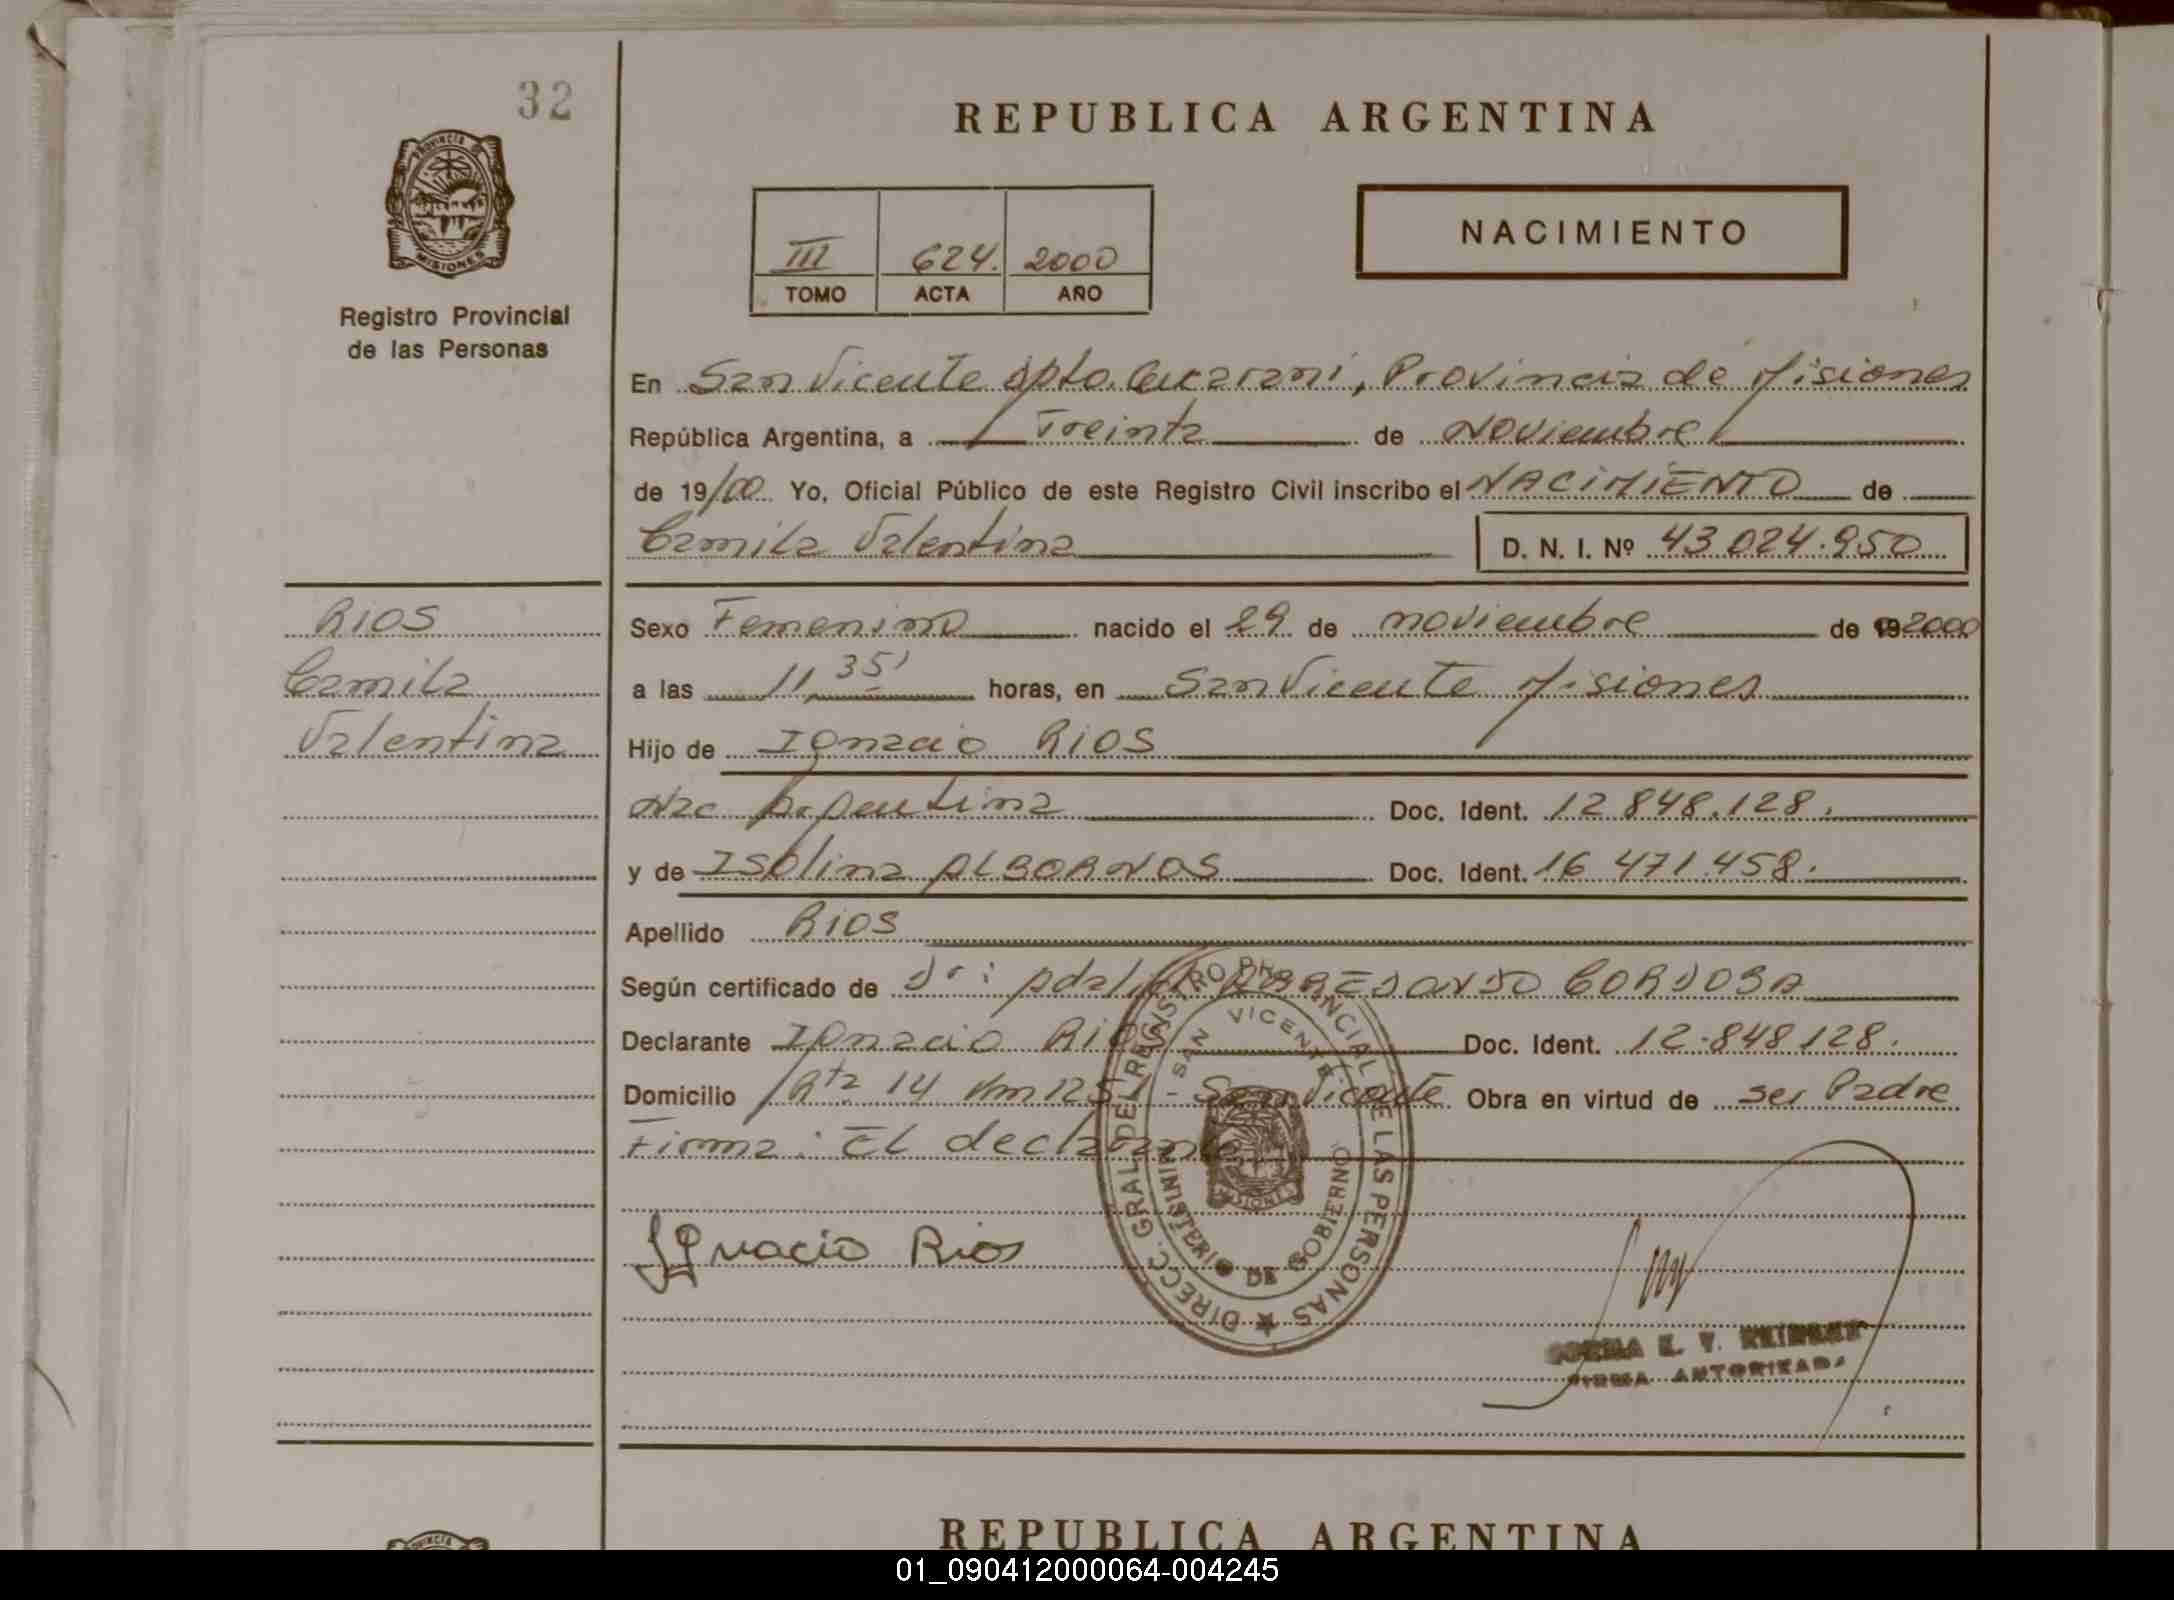 32
REPUBLICA ARGENTINA
PROVINCIA DE
MISIONES
Registro Provincial
de las Personas
III 624. 2000
TOMO ACTA AÑO
NACIMIENTO
En San Vicente Dpto. Guaraní, Provincia de Misiones
República Argentina, a Treinta de Noviembre
de 19/00 Yo, Oficial Público de este Registro Civil inscribo el NACIMIENTO de
Camila Valentina D. N. I. Nº 43.024.950
RIOS
Camila
Valentina
Sexo Femenino nacido el 29 de noviembre de 2000
a las 11,35' horas, en San Vicente Misiones
Hijo de Ignacio RIOS
Nac Argentina Doc. Ident. 12.848.128.
y de Isolina ALBORNOS Doc. Ident. 16.471.458.
Apellido RIOS
Según certificado de CORDOBA
Declarante Ignacio RIOS Doc. Ident. 12.848.128.
Domicilio Rta 14 Km 1251 - San Vicente Obra en virtud de ser Padre
Firma: El declarante
DIRECC. GRAL. DEL REGISTRO PROVINCIAL DE LAS PERSONAS
SAN VICENTE
MISIONES
MINISTERIO DE GOBIERNO
Ignacio Rios
FIRMA AUTORIZADA
REPUBLICA ARGENTINA
01_090412000064-004245